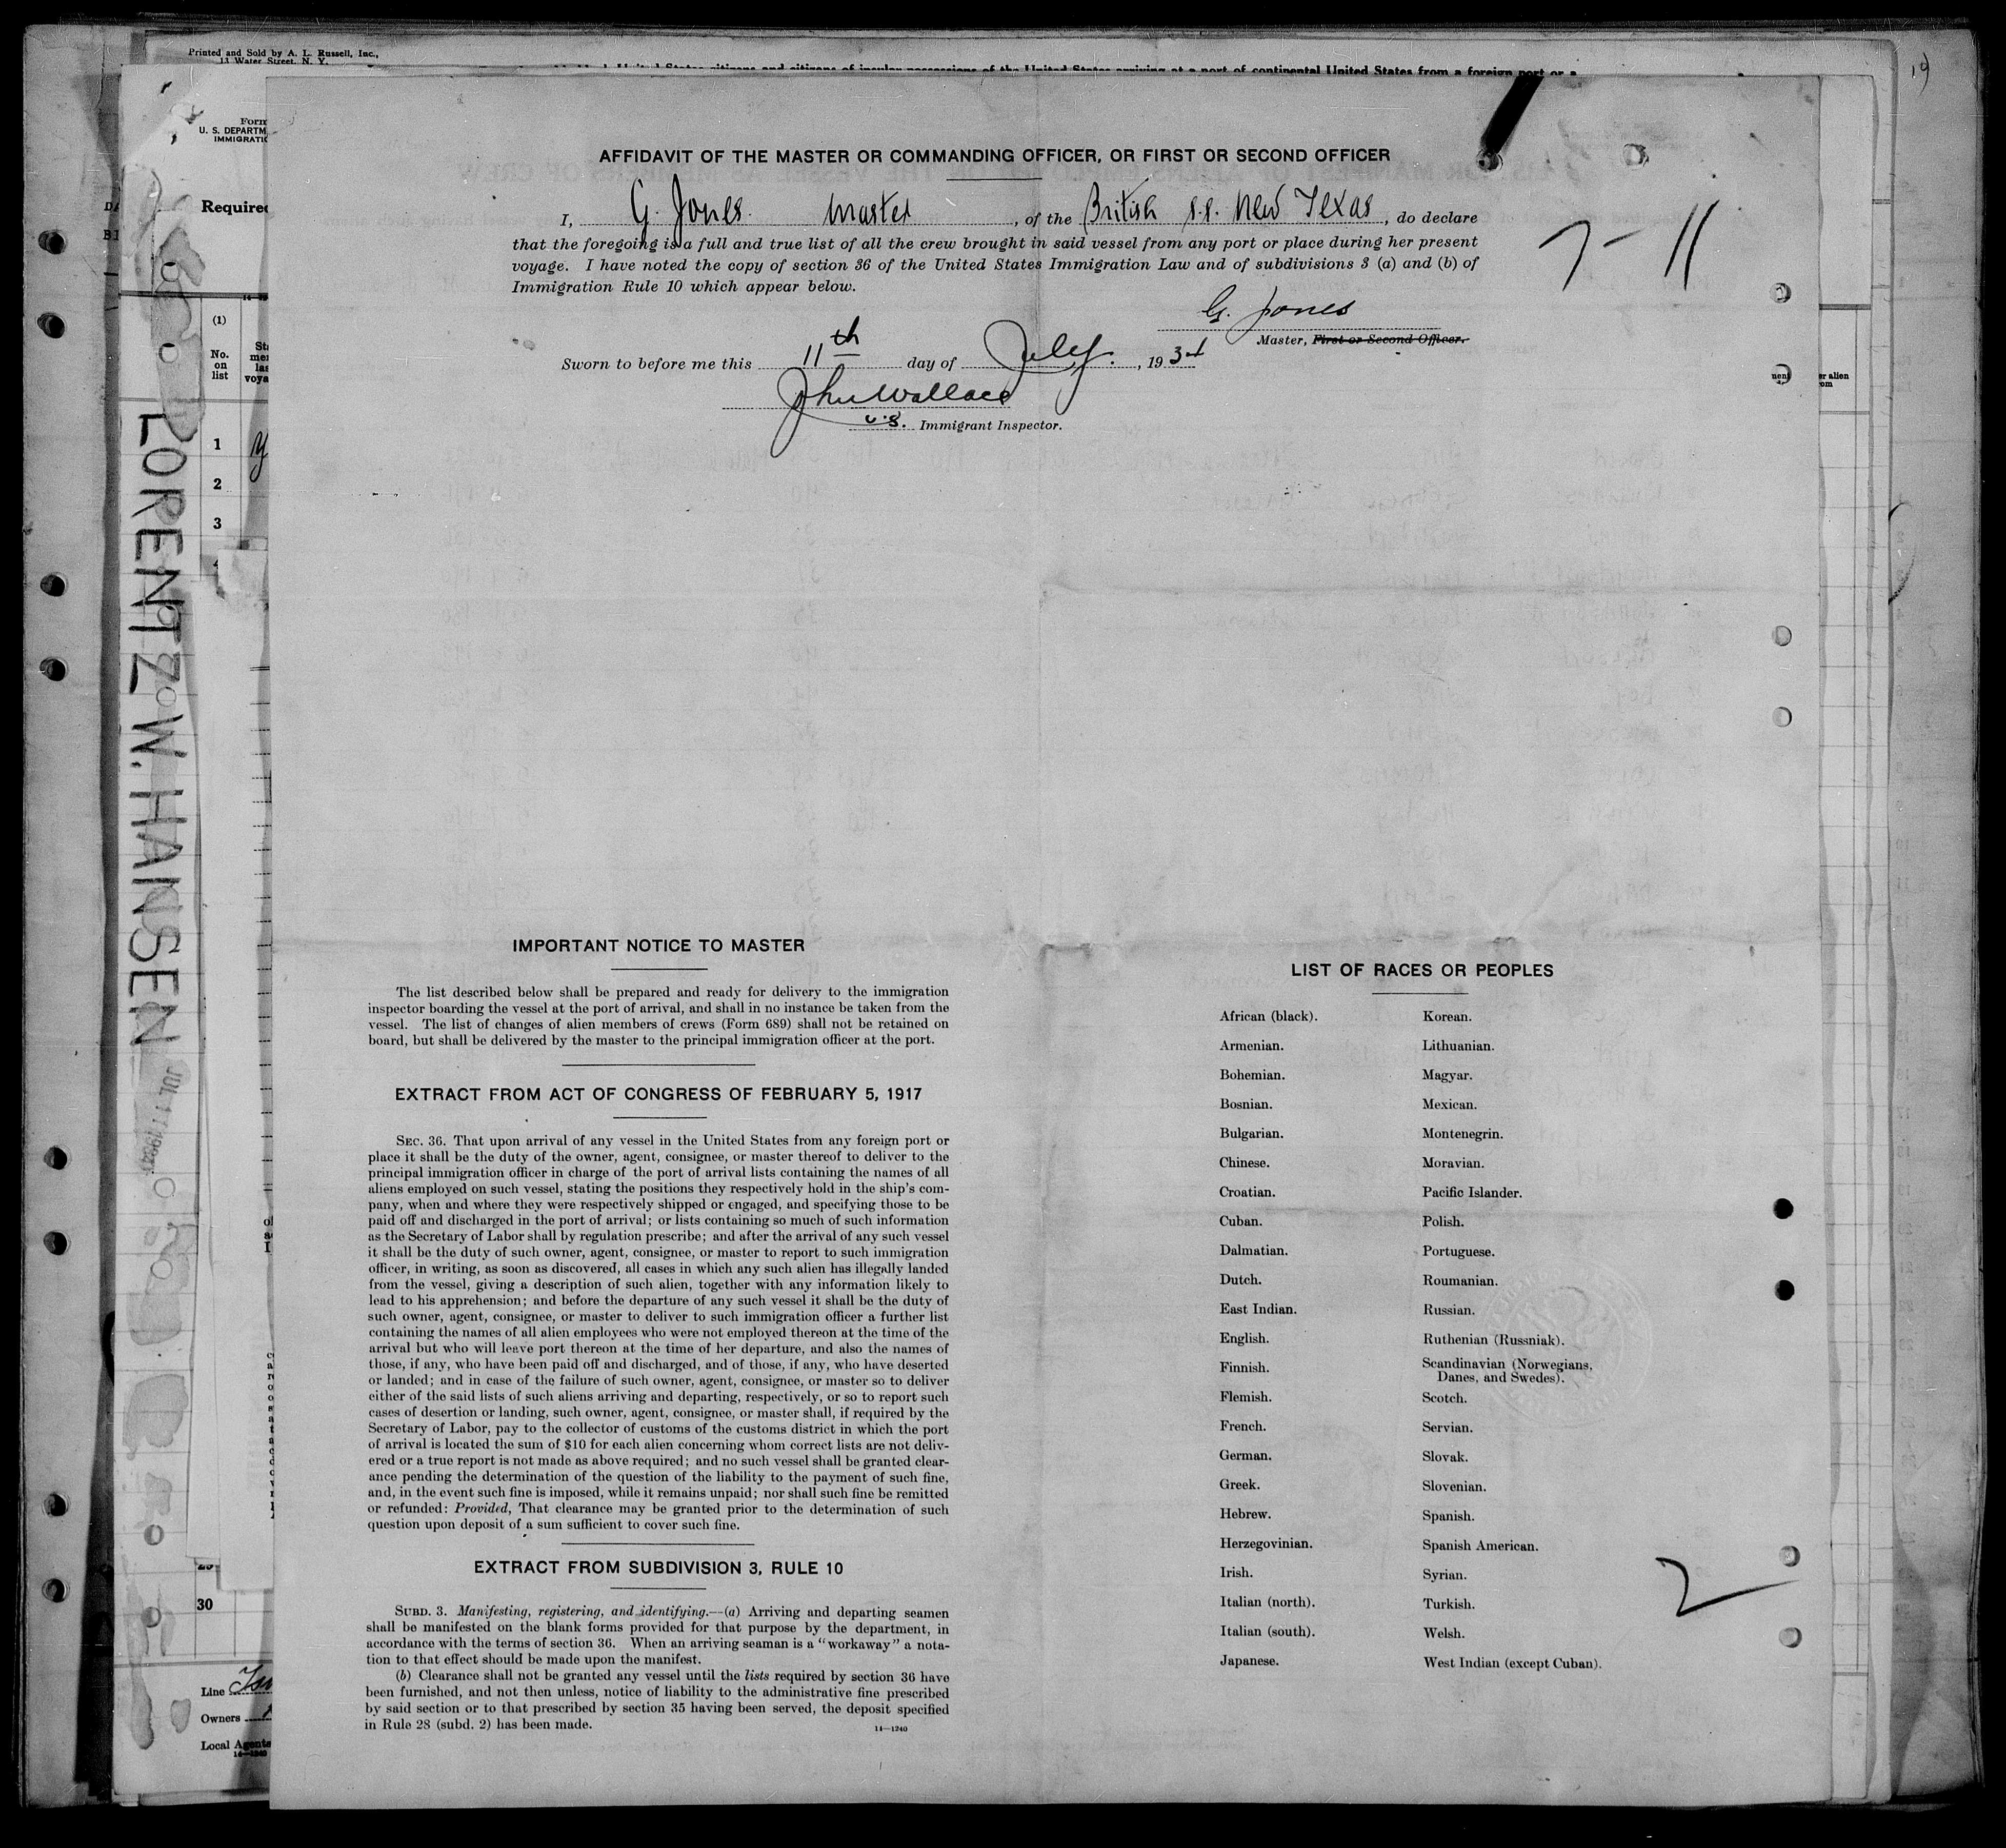 Printed and Sold by A. L. Russell, Inc.,
13 Water Street, N. Y.
United States citizens and citizens of insular possessions of the United States arriving at a port of continental United States from a foreign port or a
Form
U. S. DEPARTM
IMMIGRATIO
Required
(1)
No.
on
list
1
2
3
30
Line
Owners
Local Agents
14—1240
LORENTZ W. HANSEN
AFFIDAVIT OF THE MASTER OR COMMANDING OFFICER, OR FIRST OR SECOND OFFICER
I, G. Jones. Master, of the British s.s. New Texas, do declare
that the foregoing is a full and true list of all the crew brought in said vessel from any port or place during her present
voyage. I have noted the copy of section 36 of the United States Immigration Law and of subdivisions 3 (a) and (b) of
Immigration Rule 10 which appear below.
7-11
G. Jones
Master, First or Second Officer.
Sworn to before me this 11th day of July., 1934
John Wallace
U.S. Immigrant Inspector.
IMPORTANT NOTICE TO MASTER
The list described below shall be prepared and ready for delivery to the immigration
inspector boarding the vessel at the port of arrival, and shall in no instance be taken from the
vessel. The list of changes of alien members of crews (Form 689) shall not be retained on
board, but shall be delivered by the master to the principal immigration officer at the port.
EXTRACT FROM ACT OF CONGRESS OF FEBRUARY 5, 1917
SEC. 36. That upon arrival of any vessel in the United States from any foreign port or
place it shall be the duty of the owner, agent, consignee, or master thereof to deliver to the
principal immigration officer in charge of the port of arrival lists containing the names of all
aliens employed on such vessel, stating the positions they respectively hold in the ship's com-
pany, when and where they were respectively shipped or engaged, and specifying those to be
paid off and discharged in the port of arrival; or lists containing so much of such information
as the Secretary of Labor shall by regulation prescribe; and after the arrival of any such vessel
it shall be the duty of such owner, agent, consignee, or master to report to such immigration
officer, in writing, as soon as discovered, all cases in which any such alien has illegally landed
from the vessel, giving a description of such alien, together with any information likely to
lead to his apprehension; and before the departure of any such vessel it shall be the duty of
such owner, agent, consignee, or master to deliver to such immigration officer a further list
containing the names of all alien employees who were not employed thereon at the time of the
arrival but who will leave port thereon at the time of her departure, and also the names of
those, if any, who have been paid off and discharged, and of those, if any, who have deserted
or landed; and in case of the failure of such owner, agent, consignee, or master so to deliver
either of the said lists of such aliens arriving and departing, respectively, or so to report such
cases of desertion or landing, such owner, agent, consignee, or master shall, if required by the
Secretary of Labor, pay to the collector of customs of the customs district in which the port
of arrival is located the sum of $10 for each alien concerning whom correct lists are not deliv-
ered or a true report is not made as above required; and no such vessel shall be granted clear-
ance pending the determination of the question of the liability to the payment of such fine,
and, in the event such fine is imposed, while it remains unpaid; nor shall such fine be remitted
or refunded: Provided, That clearance may be granted prior to the determination of such
question upon deposit of a sum sufficient to cover such fine.
EXTRACT FROM SUBDIVISION 3, RULE 10
SUBD. 3. Manifesting, registering, and identifying.—(a) Arriving and departing seamen
shall be manifested on the blank forms provided for that purpose by the department, in
accordance with the terms of section 36. When an arriving seaman is a "workaway" a nota-
tion to that effect should be made upon the manifest.
(b) Clearance shall not be granted any vessel until the lists required by section 36 have
been furnished, and not then unless, notice of liability to the administrative fine prescribed
by said section or to that prescribed by section 35 having been served, the deposit specified
in Rule 28 (subd. 2) has been made.
14—1240
LIST OF RACES OR PEOPLES
African (black). Korean.
Armenian. Lithuanian.
Bohemian. Magyar.
Bosnian. Mexican.
Bulgarian. Montenegrin.
Chinese. Moravian.
Croatian. Pacific Islander.
Cuban. Polish.
Dalmatian. Portuguese.
Dutch. Roumanian.
East Indian. Russian.
English. Ruthenian (Russniak).
Finnish. Scandinavian (Norwegians,
Danes, and Swedes).
Flemish. Scotch.
French. Servian.
German. Slovak.
Greek. Slovenian.
Hebrew. Spanish.
Herzegovinian. Spanish American.
Irish. Syrian.
Italian (north). Turkish.
Italian (south). Welsh.
Japanese. West Indian (except Cuban).
2